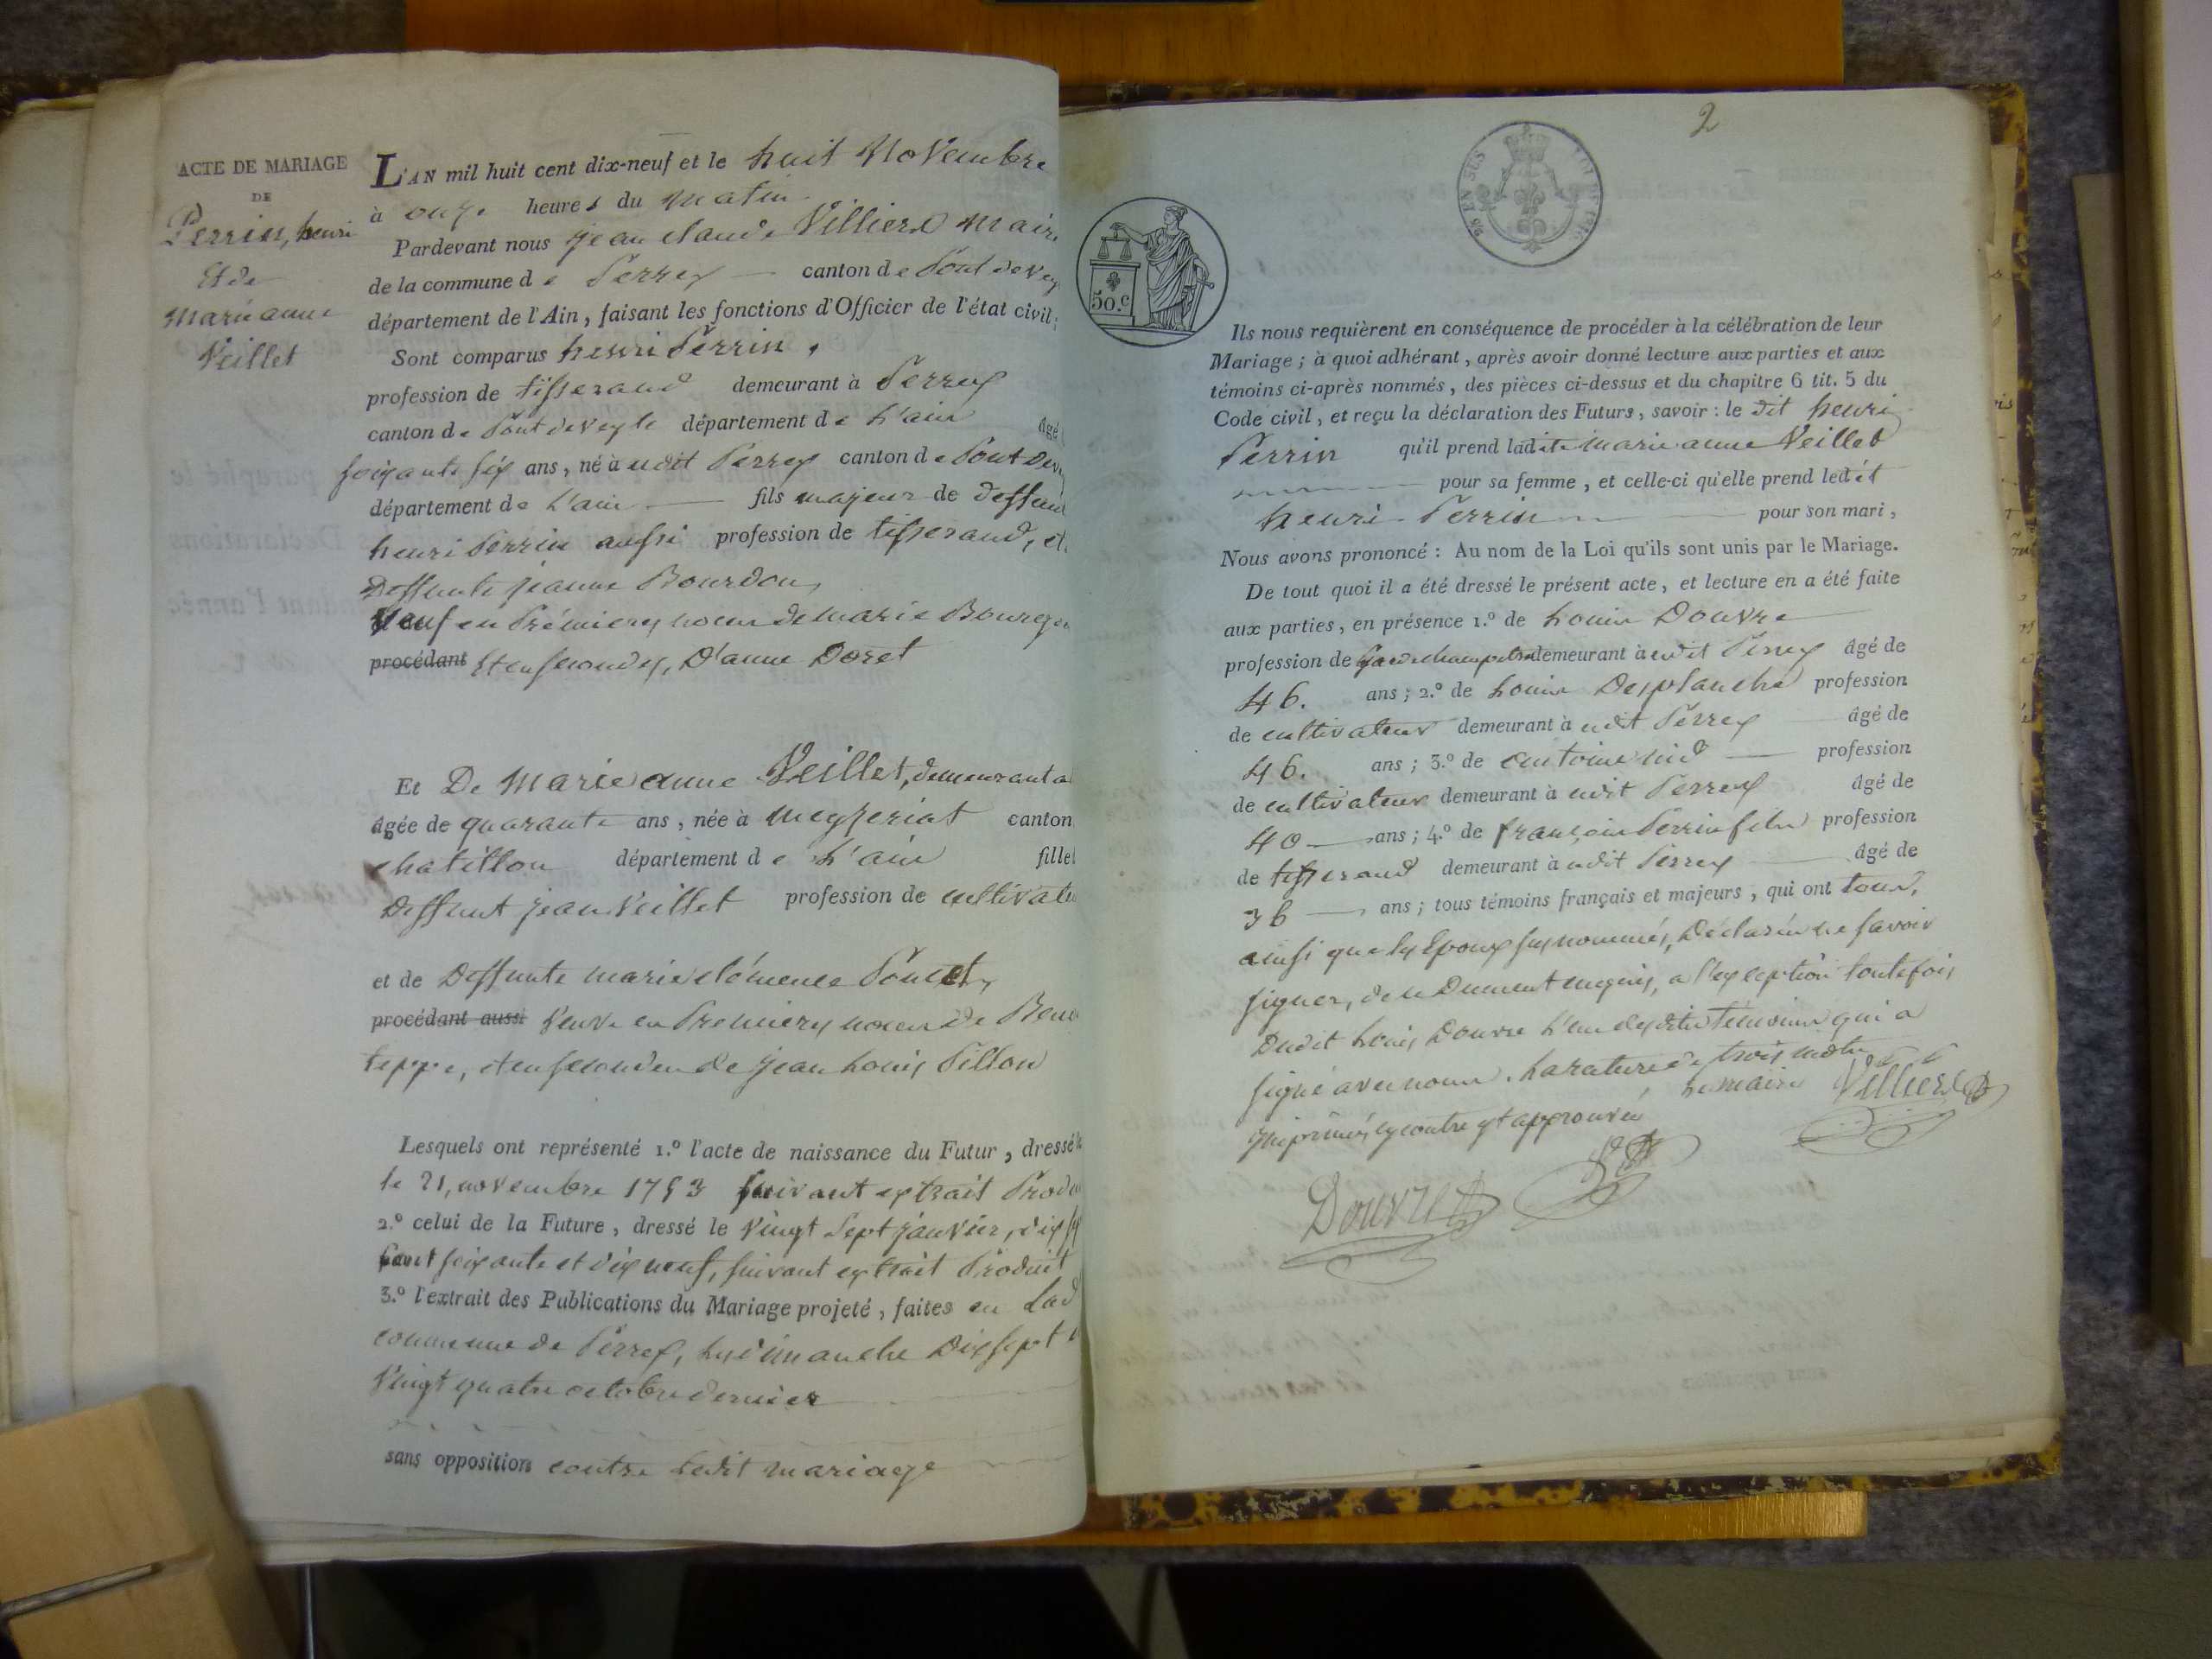 ACTE DE MARIAGE
DE
Perrin, henri
Et de
Marie anne
Veillet
L'AN mil huit cent dix-neuf et le huit Novembre
à onze heures du matin
Pardevant nous jean claude Villiers Maire
de la commune de Perrex canton de Pont de vey
département de l'Ain, faisant les fonctions d'Officier de l'état civil;
Sont comparus henri Perrin,
profession de tisserand demeurant à Perrex
canton de Pont de veyle département de L'ain âgé
soixante six ans, né à udit Perrex canton de Pont Dev
département de L'ain fils majeur de deffunt
henri Perrin aussi profession de tisserand, et
Deffunte jeanne Bourdon,
Veuf en Prémieres noces de marie Bourge
procédant Et en secondes, D'anne Doret
Et De Marie anne Veillet, demeurant a
âgée de quarante ans, née à Mezeriat canton
chatillon département de L'ain fille
Deffunt jean Veillet profession de cultivate
et de Deffunte marie clémence Poncet,
procédant aussi Veuve en Premieres noces de Beno
teppe, et en secondes de jean Louis Pillon
Lesquels ont représenté 1.º l'acte de naissance du Futur, dressé
le 21, novembre 1753 suivant extrait Produ
2.º celui de la Future, dressé le vingt sept janvier, dix s
cent soixante et dix neuf, suivant extrait Produit
3.º l'extrait des Publications du Mariage projeté, faites en Lad
commune de Perrex, les dimanche Dix sept
Vingt quatre octobre dernier
sans opposition contre Ledit mariage
2
50.c
EN SUS
Ils nous requièrent en conséquence de procéder à la célébration de leur
Mariage; à quoi adhérant, après avoir donné lecture aux parties et aux
témoins ci-après nommés, des pièces ci-dessus et du chapitre 6 tit. 5 du
Code civil, et reçu la déclaration des Futurs, savoir: le dit henri
Perrin qu'il prend ladite marie anne Veillet
pour sa femme, et celle-ci qu'elle prend ledit
henri Perrin pour son mari,
Nous avons prononcé: Au nom de la Loi qu'ils sont unis par le Mariage.
De tout quoi il a été dressé le présent acte, et lecture en a été faite
aux parties, en présence 1.º de Louis Douvre
profession de Garde champetre demeurant à udit Perrex âgé de
46. ans; 2.º de Louis Desplanche profession
de cultivateur demeurant à udit Perrex âgé de
46. ans; 3.º de antoine nid profession
de cultivateur demeurant à udit Perrex âgé de
40 ans; 4.º de françois Perrin fils profession
de tisserand demeurant à udit Perrex âgé de
36 ans; tous témoins français et majeurs, qui ont tous,
ainsi que les Epoux susnommés, Déclarés ne savoir
signer, de ce Dument enquis, a l'exception toutefois
Dudit Louis Douvre L'un desdits témoins qui a
signé avec nous. La rature de trois mots
jmprimés cy contre est approuvée Le maire Villiers
Douvre